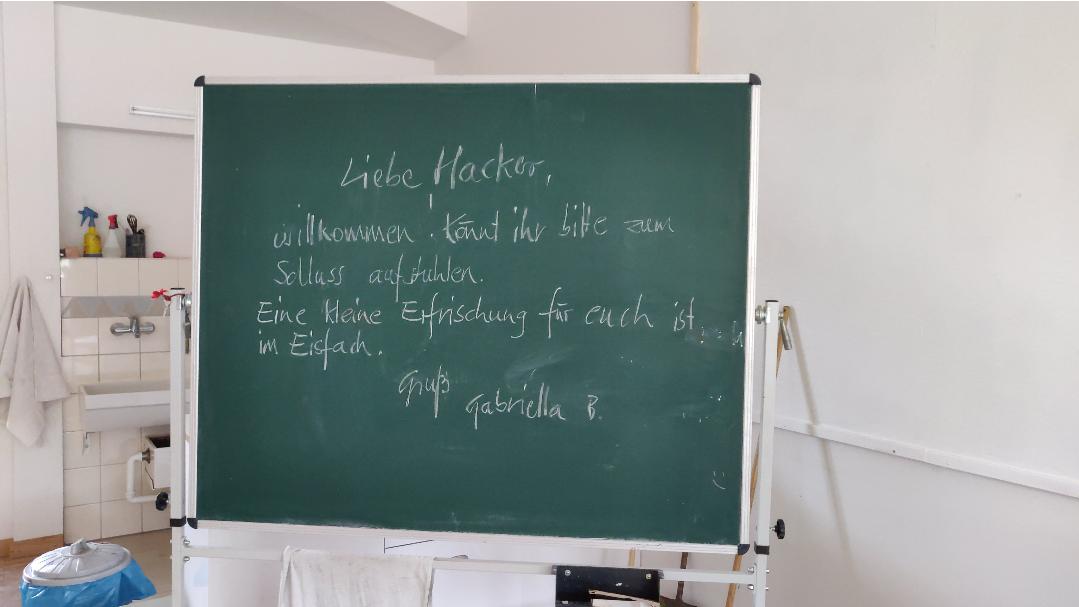 Liebe Hacker,
willkommen. Könnt ihr bitte zum
Schluss aufstuhlen.
Eine kleine Erfrischung für euch ist
im Eisfach.
Gruß
Gabriella B.
:)